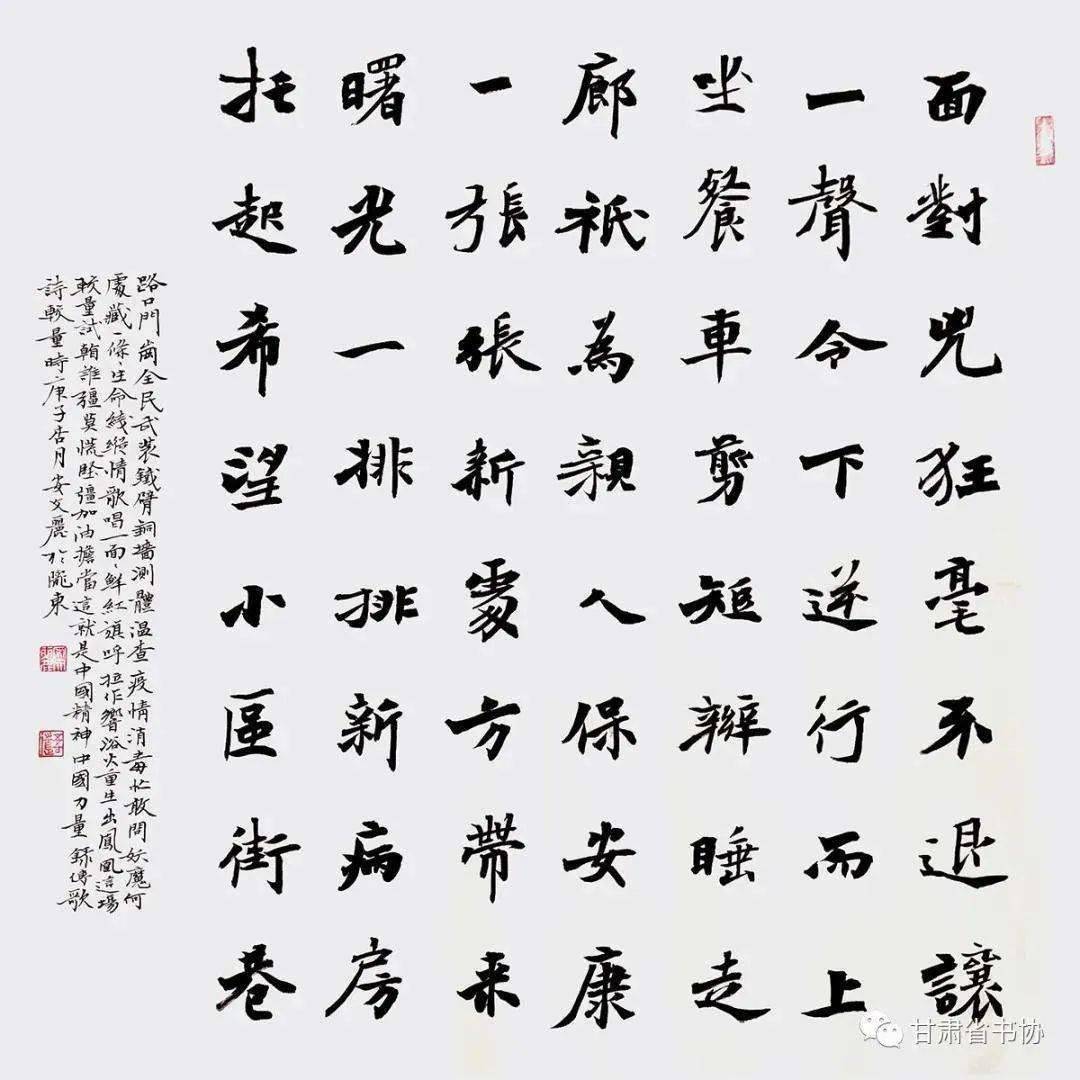 面對兇狂毫不退讓
一聲令下逆行而上
坐餐車剪短辮睡走
廊衹為親人保安康
一張張新處方帶来
曙光一排排新病房
托起希望小區街巷
路口門崗全民武裝鐵臂銅墻測體溫查疫情消毒忙敢問妖魔何
處藏一條、生命綫縱情歌唱一面、鮮紅旗呼拉作響浴火重生出鳳凰這場
較量試看誰彊莫慌堅彊加油擔當這就是中國精神中國力量 錄传歌
詩較量時庚子杏月安文麗於隴東
甘肃省书协